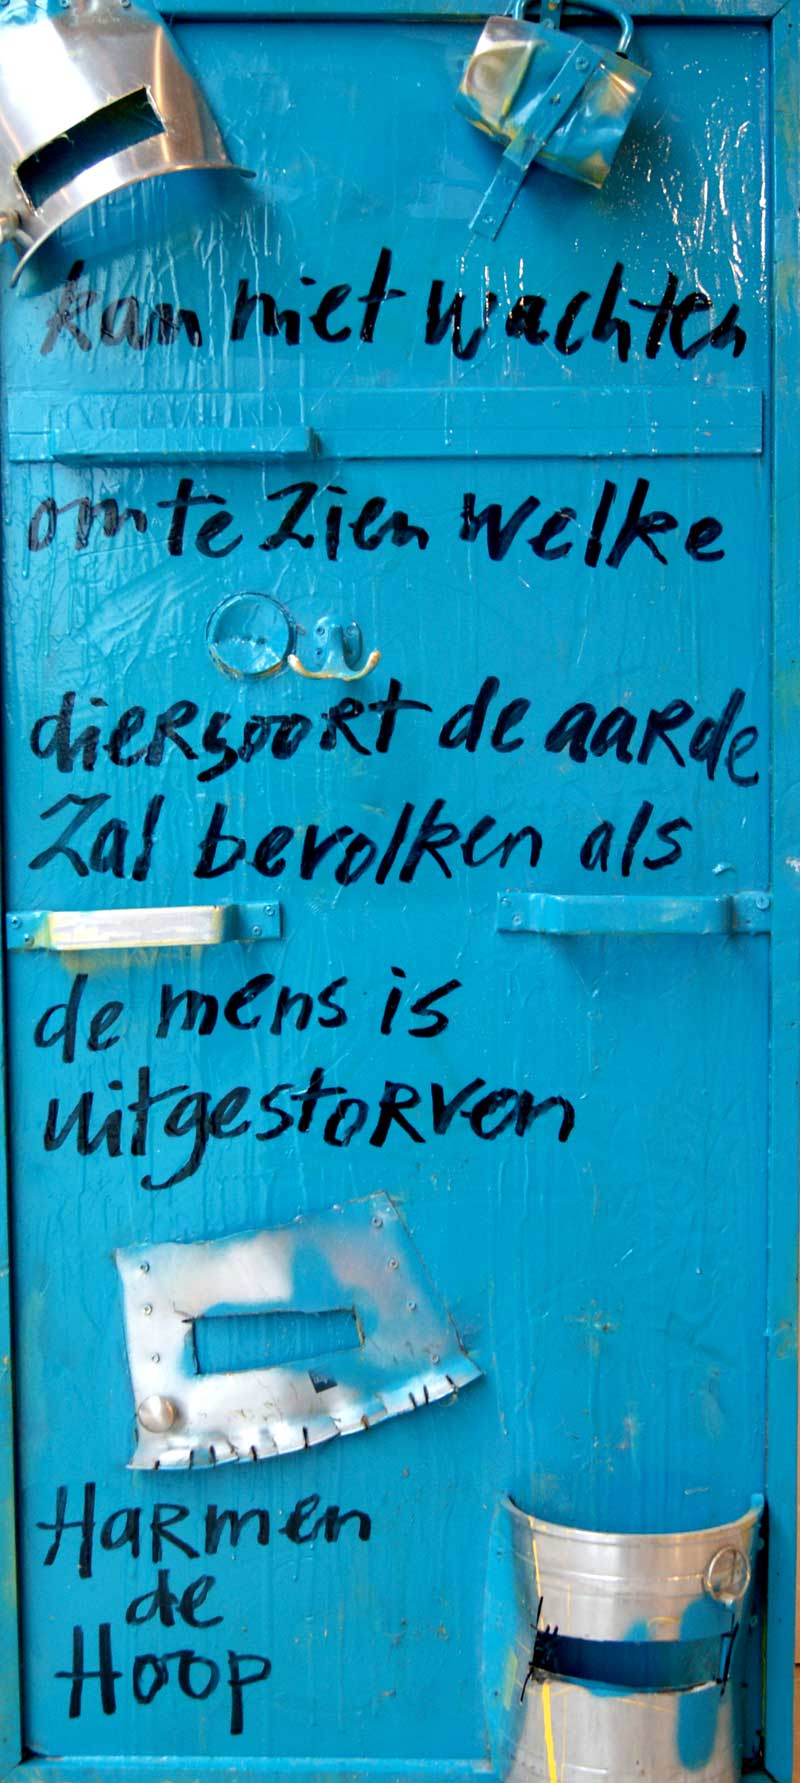 kan niet wachten
om te zien welke
diersoort de aarde
zal bevolken als
de mens is
uitgestorven
Harmen
de
Hoop